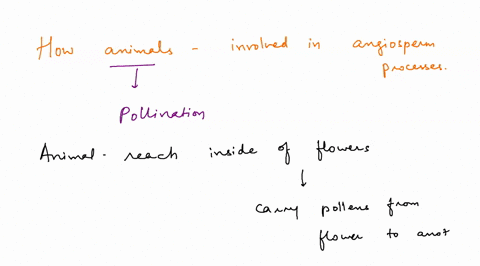 How animals - involved in angiosperm
processes.
Pollination
Animal - reach inside of flowers
carry pollens from
flower to anot